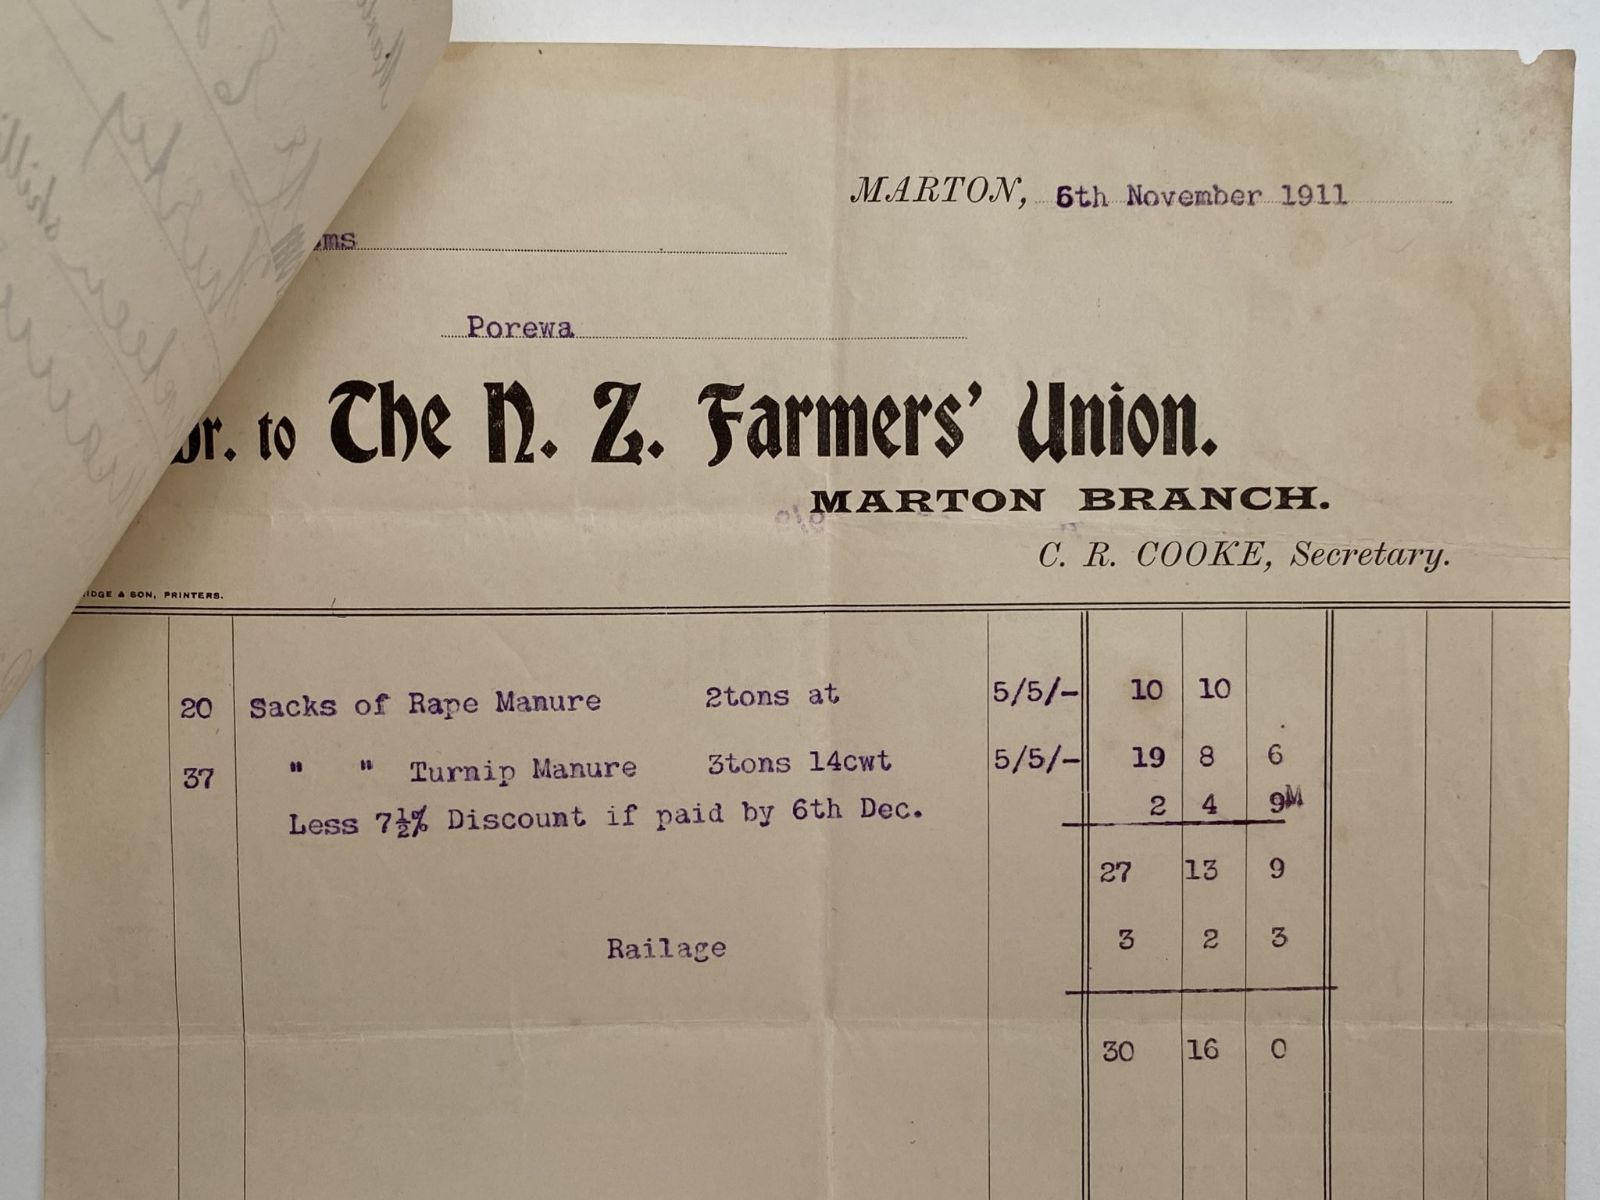 MARTON, 6th November 1911
Porewa
Dr. to The N. Z. Farmers' Union.
MARTON BRANCH.
C. R. COOKE, Secretary.
& SON, PRINTERS.
20 Sacks of Rape Manure 2tons at 5/5/- 10 10
37 " " Turnip Manure 3tons 14cwt 5/5/- 19 8 6
Less 7½% Discount if paid by 6th Dec. 2 4 9
27 13 9
Railage 3 2 3
30 16 0